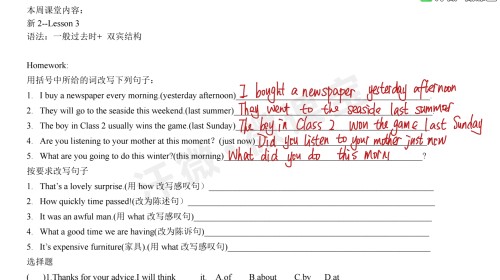 本周课堂内容:
新 2--Lesson 3
语法: 一般过去时+ 双宾结构
Homework:
用括号中所给的词改写下列句子:
1. I buy a newspaper every morning (yesterday afternoon) I bought a newspaper yesterday afternoon
2. They will go to the seaside this weekend (last summer) They went to the seaside last summer
3. The boy in Class 2 usually wins the game.(last Sunday) The boy in Class 2 won the game last Sunday
4. Are you listening to your mother at this moment? (just now) Did you listen to your mother just now
5. What are you going to do this winter?(this morning) What did you do this morn ?
按要求改写句子
1. That's a lovely surprise.(用 how 改写感叹句)
2. How quickly time passed!(改为陈述句)
3. It was an awful man.(用 what 改写感叹句)
4. What a good time we are having(改为陈诉句)
5. It's expensive furniture(家具).(用 what 改写感叹句)
选择题
( )1.Thanks for your advice.I will think it. A.of B.about C.by D.at